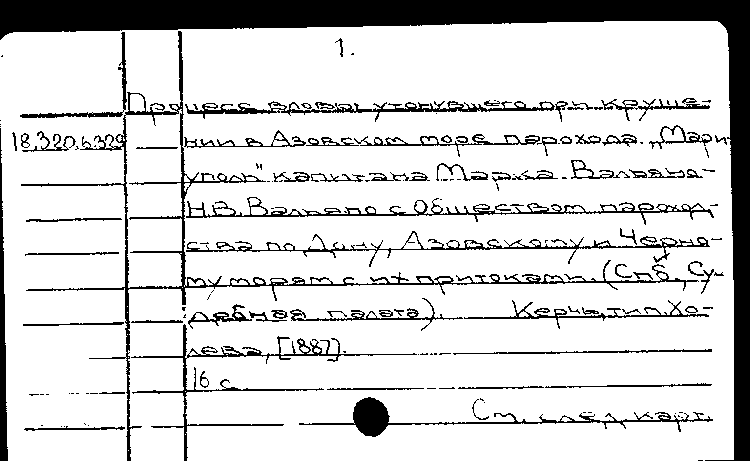 1.
Процесс вдовы утонувшего при круше-
18.320.6.329 нии в Азовском море парохода „Мари-
уполь" капитана Марка Вальяно-
Н.В. Вальяно с Обществом пароход-
ства по Дону, Азовскому и Черно-
му морям с их притоками. (Спб. Су-
дебная палата). Керчь, тип. Хо-
лева, [1887].
16 с.
См. след. карт.